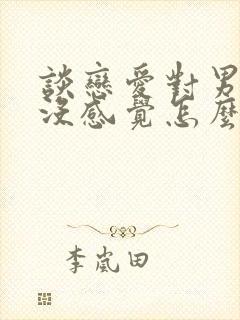 談戀愛對男
沒感覺怎麼
李嵐田